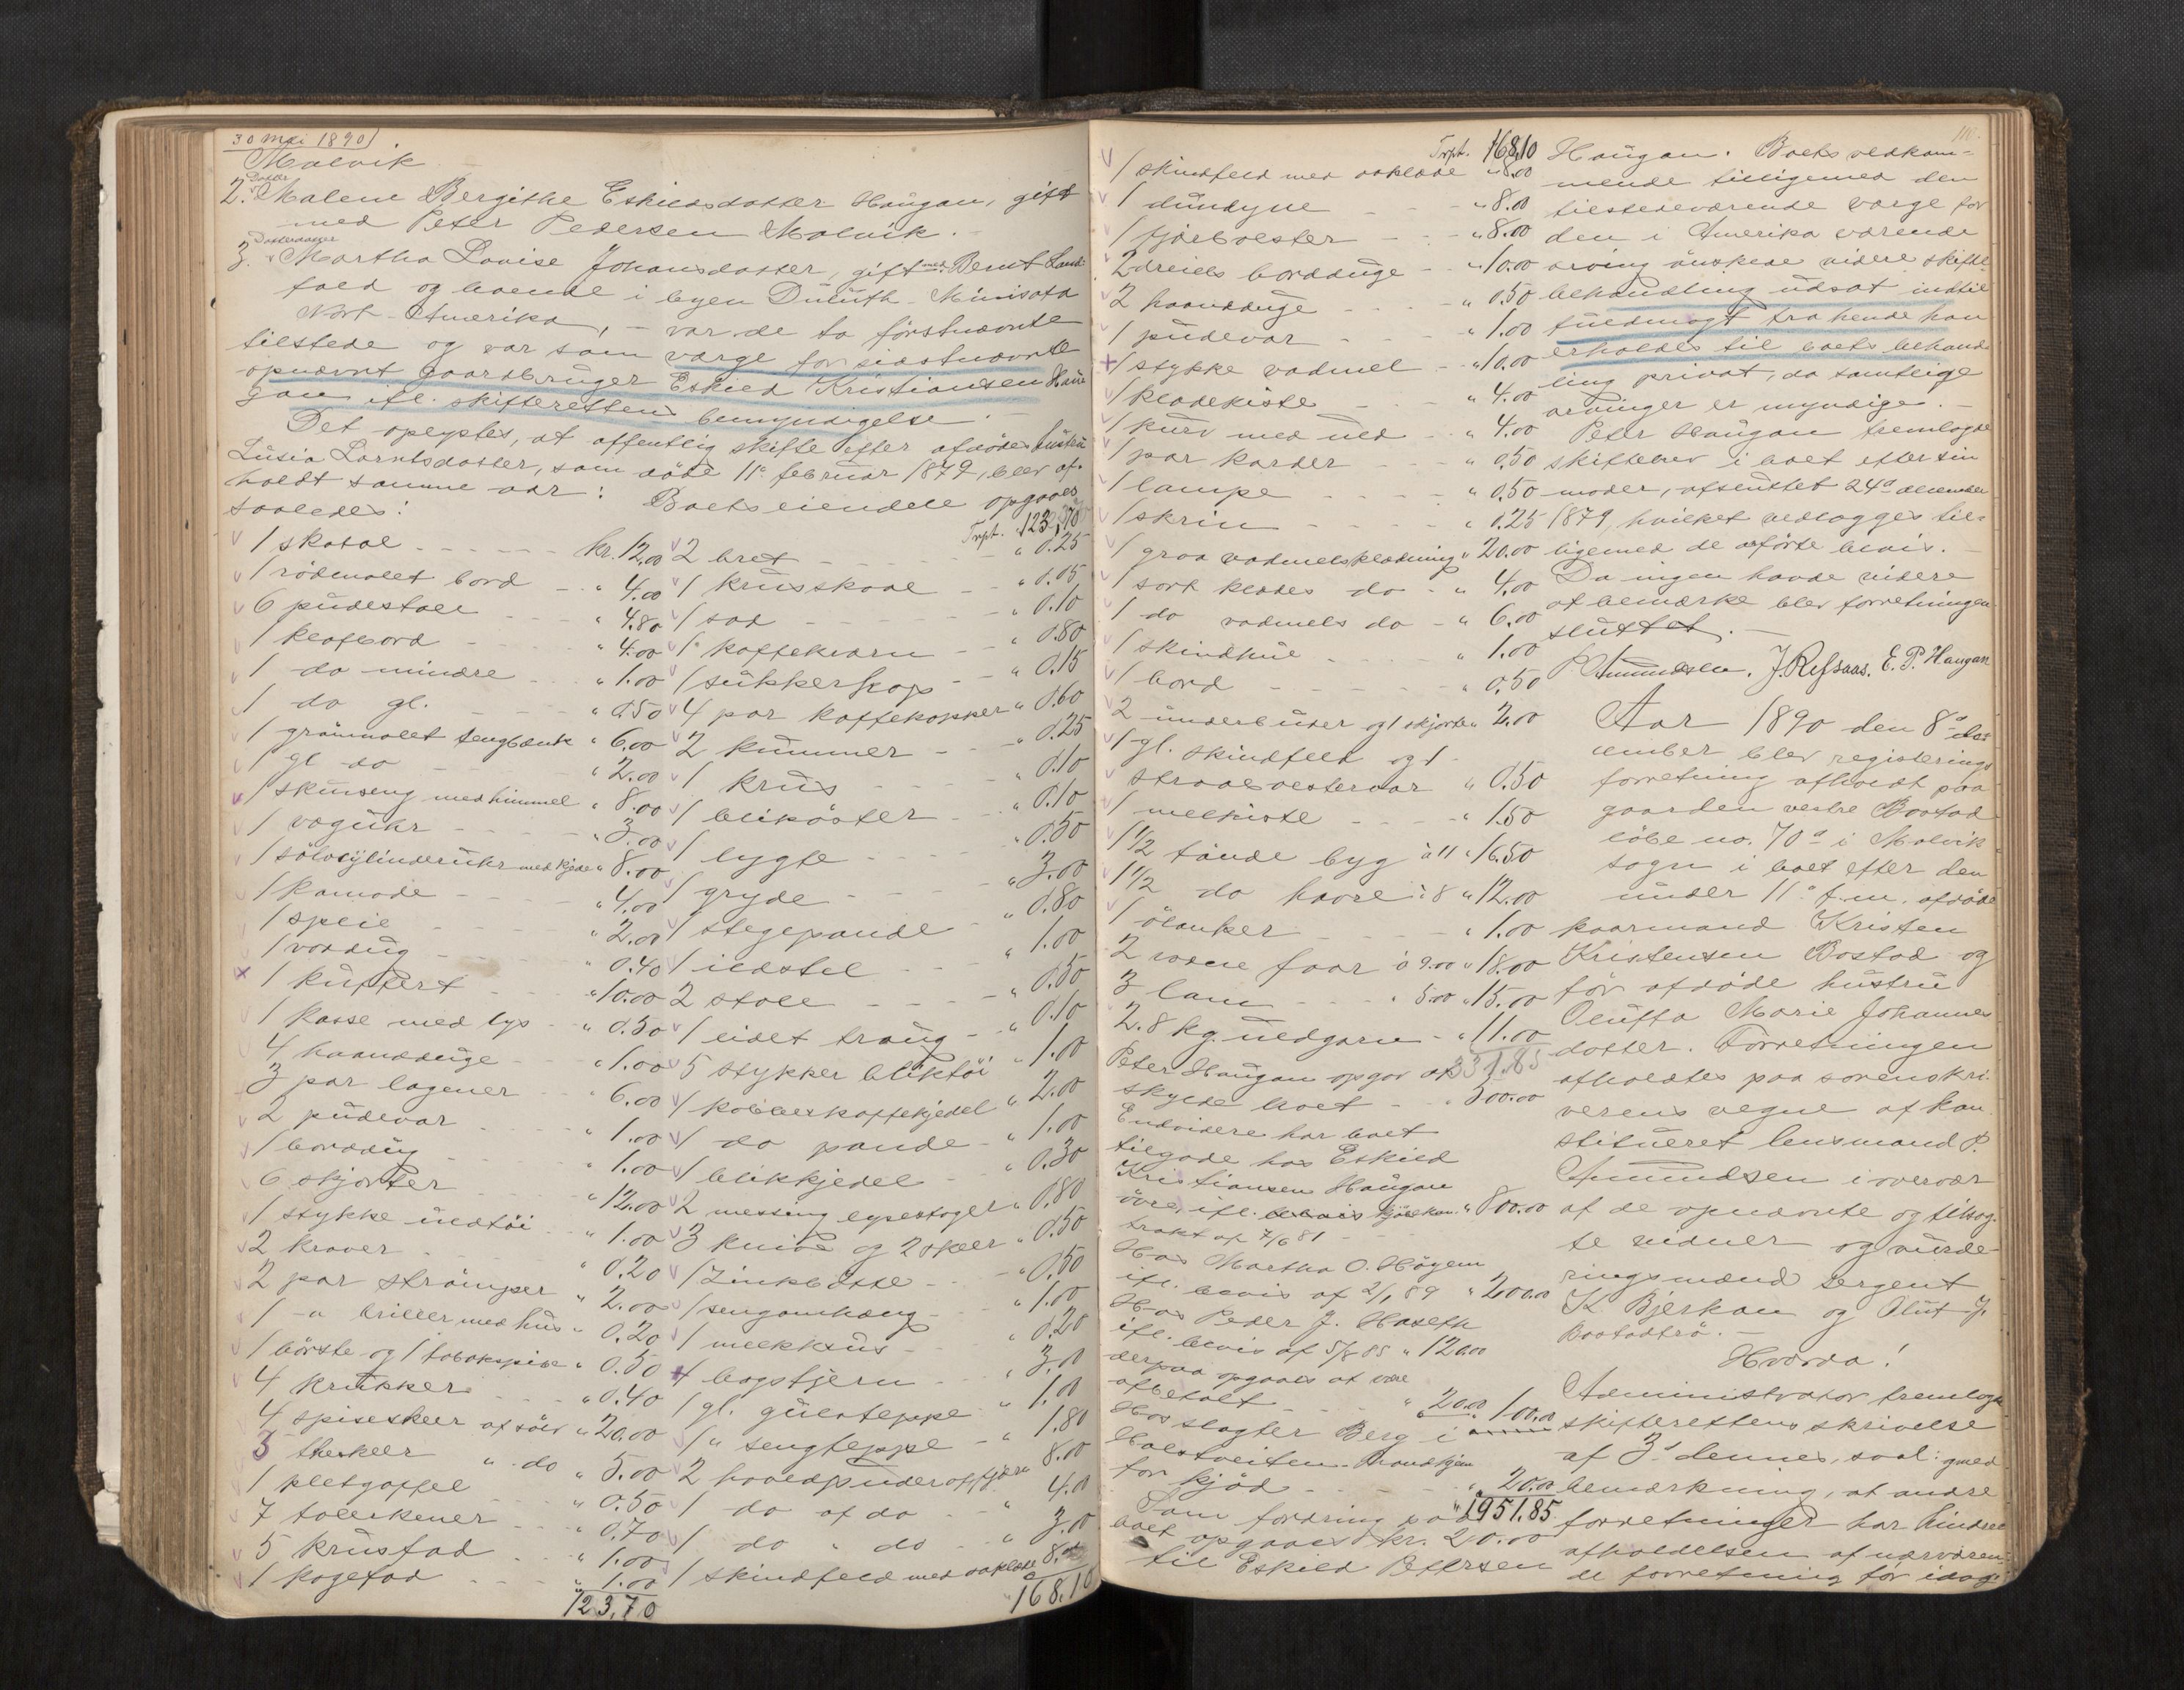 30 Mai 1890
Malvik
Datter
2. Malene Bergithe Eskildsdatter Haugan, gift
med Peter Pedersen Malvik.
Datterdatter
3. Martha Lovise Johansdatter, gift med Bernt Land-
fald og boende i byen Duluth - Minisota
Nort-Amerika, - var de to förstnævnte
tilstede og var som værge for sidstnævnte
opnævnt gaardbruger Eskild Kristiansen Hau-
gan ifl. skifterettens bemyndigelse.
Det oplystes, at offentlig skifte efter afdöde hustru
Lusia Larntsdatter, som döde 11te februar 1879, blev af-
holdt samme aar: Boets eiendele opgaaes
saaledes:
1 skatol kr. 12,00
1 rödmalet bord " 4.00
6 pudestole " 4.80
1 klafbord " 4.00
1 do mindre " 1.00
1 do gl. " 0.50
1 grönmalet sengbænk " 6.00
1 gl do " 2.00
1 skuvseng med himmel " 8.00
1 væguhr " 3.00
1 sölvcylinderuhr med kjede " 8.00
1 komode " 4.00
1 speil " 2.00
1 voxdug " 0.40
1 kuffert " 10.00
1 kasse med lys " 0.50
4 haandduge " 1.00
3 par lagener " 6.00
2 pudevar " 1.00
1 borddug " 1.00
6 skjorter " 12.00
1 stykke uldtöi " 1.00
2 kraver " 0.20
2 par strömper " 2.00
1 " briller med hus " 0.20
1 börste og 1 tobakspibe " 0.50
4 krukker " 0.40
4 spiseskeer af sölv " 20.00
3 theskeer " do " 5.00
1 pletgaffel " 0.50
7 tallerkener " 0.70
5 krusfad " 1.00
1 kagefad " 1.00
123,70
Trpt. 123,70
2 bret " 0.25
1 krusskaal " 0.05
1 sad " 0.10
1 kaffekværn " 0.80
1 sukkerkop " 0.15
4 par kaffekopper " 0.60
2 kummer " 0.25
1 krus " 0.10
1 bliköster " 0.10
1 lygte " 0.50
1 gryde " 3.00
1 stegepande " 0.80
1 ildstel " 1.00
2 stole " 0.50
1 lidet traug " 0.10
5 stykker bliktöi " 1.00
1 kobberkaffekjedel " 2.00
1 do pande " 1.00
1 blikkjedel " 0.30
2 messing lysestager " 0.80
3 knive og 2 skeer " 0.50
1 Zinkbötte " 0.50
1 sengomhæng " 1.00
1 melkkrus " 0.20
4 bogstjern " 3.00
1 gl. gulvteppe " 1.00
1 " sengteppe " 1.80
2 hovedpuder af fjær 8.00
1 do af do " 4.00
1 do " do " 3.00
1 skindfeld med aaklæde 8.00
" 168.10
Trpt. 168,10
1 skindfeld med aaklæde " 8.00
1 dundyne " 8.00
1 fjærbolster " 8.00
2 dreiels borddüge " 10.00
2 haandduge " 0.50
1 pudevar " 1.00
1 stykke vadmel " 10.00
1 klædekiste " 4.00
1 kurv med uld " 4.00
1 par karder " 0.50
1 lampe " 0.50
1 skrin " 0.25
1 graa vadmelsklædning " 20.00
1 sort klædes do " 4.00
1 do vadmels do " 6.00
1 skindhue " 1.00
1 bord " 0.50
2 underbuxer og 1 skjorte " 2.00
1 gl. skindfeld og 1
straabolstervar " 0.50
1 melkiste " 1.50
1 1/2 tönde byg à 11 " 16.50
1 1/2 do havre à 8 " 12.00
1 ölanker " 1.00
2 voxne faar à 9.00 " 18.00
3 lam " 5.00 " 15.00
2.8 kg. uldgarn " 11.00
331.85
Peter Haugan opgav at
skylde boet " 300.00
Endvidere har boet
tilgode hos Eskild
Kristiansen Haugan
övre, ifl. kjöbekon- " 800.00
trakt af 7/6 81
Hos Martha O. Högem
ifl. bevis af 2/1 89 " 200.00
Hos Peder J. Haseth
ifl. bevis af 5/8 85 " 120.00
derpaa opgaaes at være
afbetalt " 20.00 100.00
Hos slagter Berg i
Trondhjem
for kjöd " 20.00
" 1951.85
Som fordring paa
boet opgaaes kr. 20.00
til Eskild Petersen
Haugan. Boets vedkom-
mende tilligemed den
tilstedeværende værge for
den i Amerika værende
arving önskede videre skifte-
behandling udsat indtil
fuldmagt fra hende kan
erholdes til boets behand-
ling privat, da samtlige
arvinger er myndige.
Peter Haugan fremlagde
skiftebrev i boet efter sin
moder, afsluttet 24de december
1879, hvilket vedlægges til-
ligemed de anförte bevis.
Da ingen havde videre
at bemærke blev forretningen
sluttet.
P. Amundsen. J. Refsaas. E. P. Haugan
Aar 1890 den 8de de-
cember blev registerings
forretning afholdt paa
gaarden vestre Bostad
löbe no. 70a i Malvik
sogn i boet efter den
under 11te f.m. afdöde
kaarmand Kristen
Kristensen Bostad og
för afdöde hustru
Oluffa Marie Johannes
datter. Forretningen
afholdtes paa sorenskri-
verens vegne af kon-
stitueret lensmand P.
Amundsen i overvær
af de opnævnte og tiltag-
te vidner og vurde-
ringsmænd sergent
K. Bjerkan og Oluf J.
Bostadtrö.
Hvorda!
Administrator fremlagde
skifterettens skrivelse
af 3de dennes, saal: med
bemærkning, at andre
forretninger har hindret
afholdelsen af nærværen-
de forretning för idag.